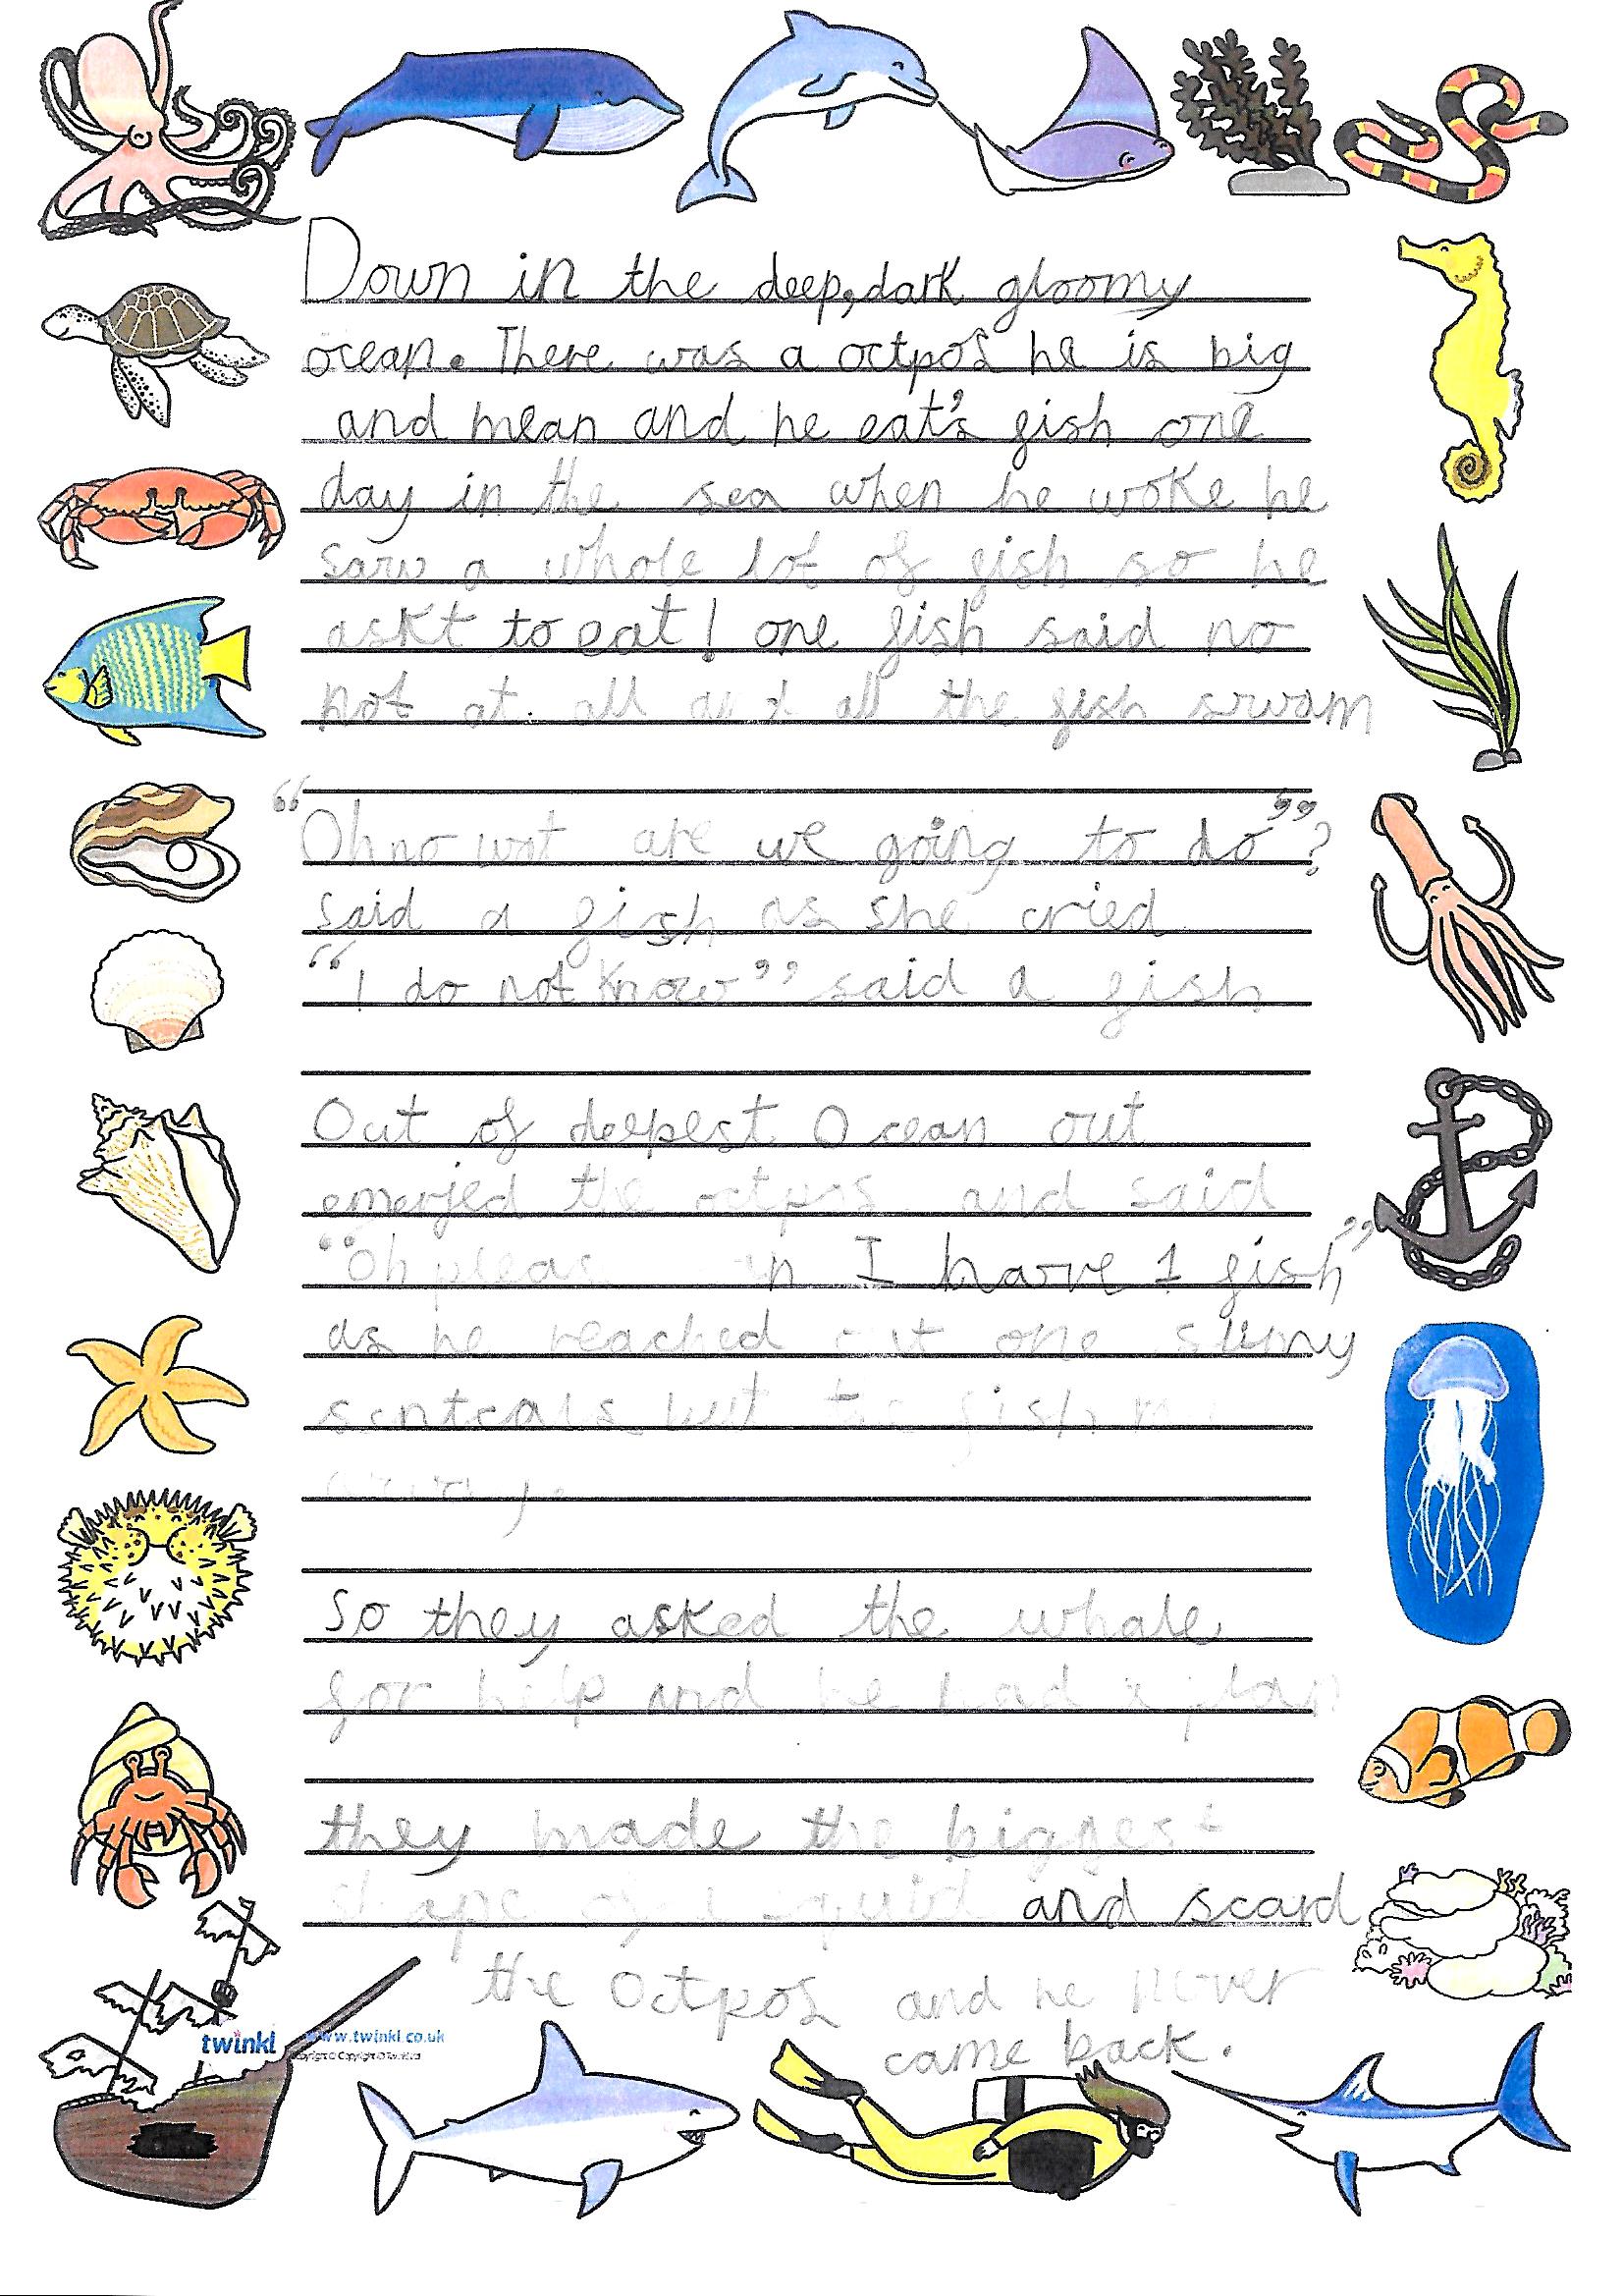 Down in the deep, dark gloomy
ocean. There was a octpos he is big
and mean and he eat's fish one
day in the sea when he woke he
saw a whole lot of fish so he
askt to eat! one fish said no
not at all and all the fish swam
"Oh no wot are we going to do"?
said a fish as she cried
"I do not know" said a fish
Out of deepest Ocean out
emerjed the octpos and said
"Oh pleas can I harve 1 fish"
as he reached out one slimy
but the fish
So they asked the whale
for help and he had a plan
they made the biggest
shape of a squid and scard
the Octpos and he never
came back.
twinkl www.twinkl.co.uk